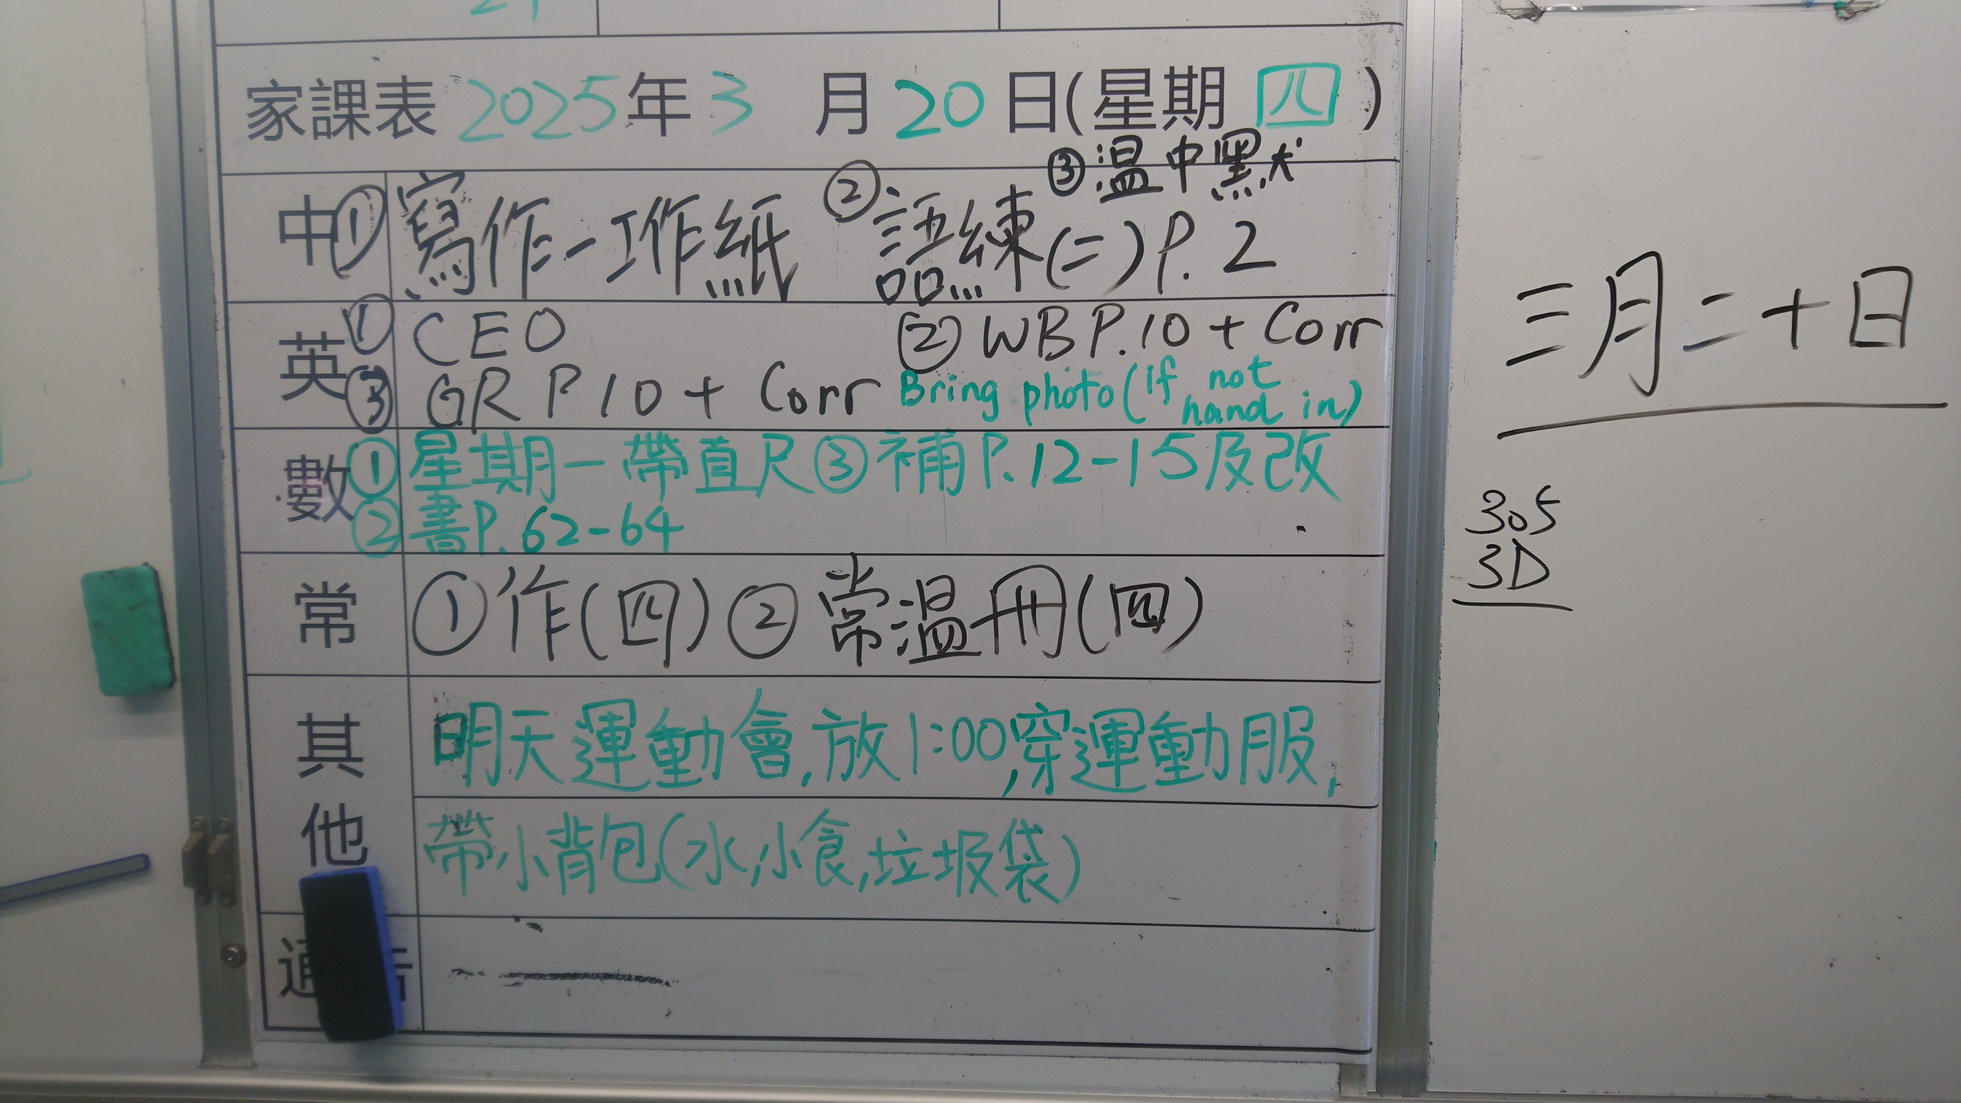 家課表 2025年3月20日(星期四)
③溫中默
中 ①寫作-工作紙 ②語練(二)P.2
英 ①CEO ②WB P.10 + Corr
③GR P 10 + Corr Bring photo (if not hand in)
數 ①星期一帶直尺 ③補P.12-15及改
②書P.62-64
常 ①作(四) ②常溫冊(四)
其他
明天運動會,放1:00,穿運動服,
帶小背包(水,小食,垃圾袋)
通告
三月二十日
305
3D